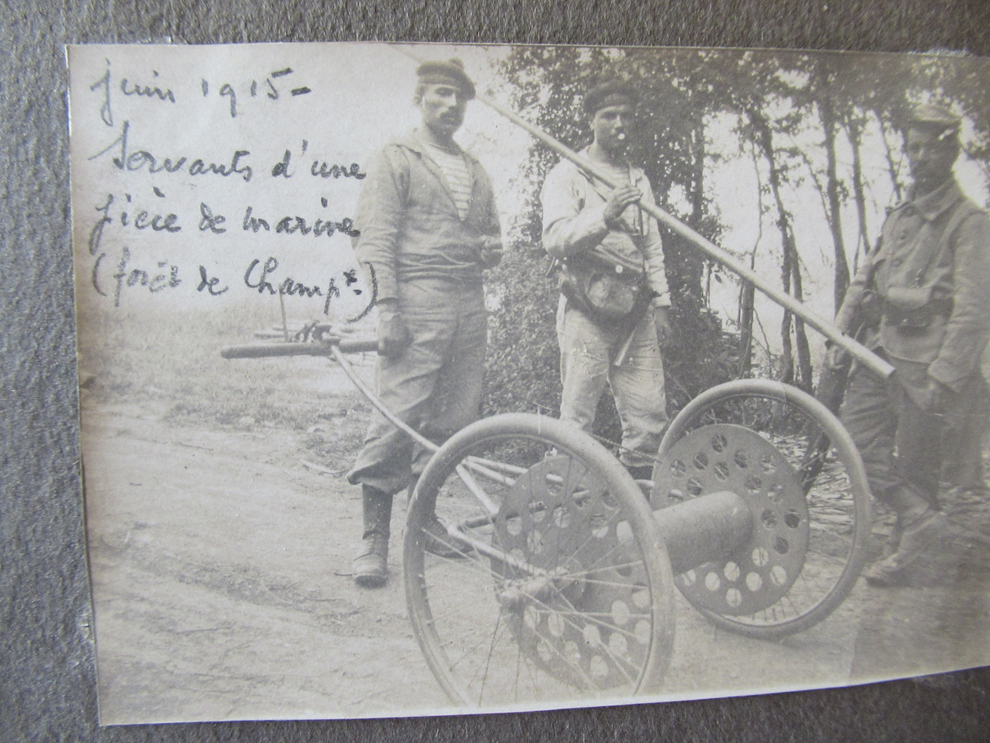 juin 1915 -
Servants d'une
pièce de marine
(forêt de Champ^te.)